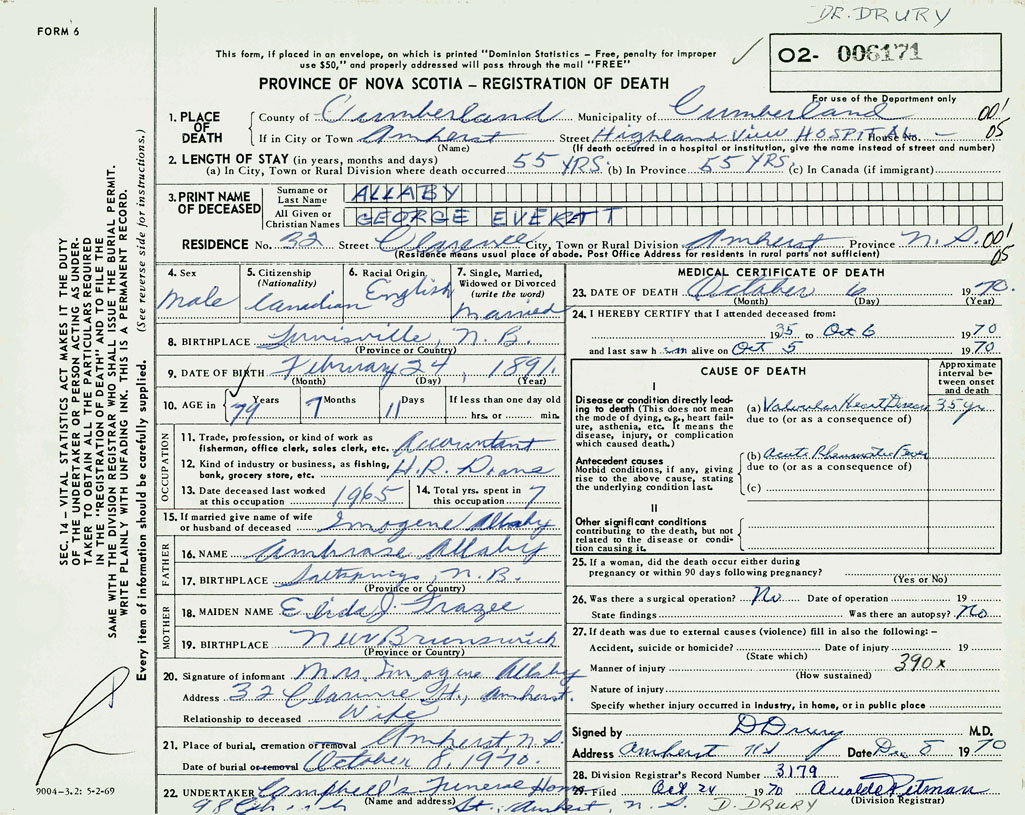 DR. DRURY
FORM 6
This form, if placed in an envelope, on which is printed "Dominion Statistics - Free, penalty for improper
use $50," and properly addressed will pass through the mail "FREE"
02- 006171
For use of the Department only
PROVINCE OF NOVA SCOTIA — REGISTRATION OF DEATH
1. PLACE OF DEATH County of Cumberland Municipality of Cumberland 00'
If in City or Town Amherst Street Highland View HOSPITAL House No. - 05
(Name) (If death occurred in a hospital or institution, give the name instead of street and number)
2. LENGTH OF STAY (in years, months and days)
(a) In City, Town or Rural Division where death occurred 55 YRS. (b) In Province 55 YRS. (c) In Canada (if immigrant)
3. PRINT NAME OF DECEASED Surname or Last Name ALLABY
All Given or Christian Names GEORGE EVERATT
RESIDENCE No. 32 Street Clarence City, Town or Rural Division Amherst Province N.S. 00' 05
(Residence means usual place of abode. Post Office Address for residents in rural parts not sufficient)
4. Sex Male
5. Citizenship (Nationality) Canadian
6. Racial Origin English
7. Single, Married, Widowed or Divorced (write the word) Married
8. BIRTHPLACE N.B.
(Province or Country)
9. DATE OF BIRTH February 24, 1891.
(Month) (Day) (Year)
10. AGE in 79 Years 7 Months 11 Days If less than one day old hrs. or min.
OCCUPATION
11. Trade, profession, or kind of work as fisherman, office clerk, sales clerk, etc. Accountant
12. Kind of industry or business, as fishing, bank, grocery store, etc. H.R. Doane
13. Date deceased last worked at this occupation 1965
14. Total yrs. spent in this occupation 7
15. If married give name of wife or husband of deceased Imogene Allaby
FATHER
16. NAME Ambrose Allaby
17. BIRTHPLACE N.B.
(Province or Country)
MOTHER
18. MAIDEN NAME J. Frazee
19. BIRTHPLACE New Brunswick
(Province or Country)
20. Signature of informant Mrs. Imogene Allaby
Address 32 Clarence St., Amherst.
Relationship to deceased Wife
21. Place of burial, cremation or removal Amherst N.S.
Date of burial or removal October 8, 1970.
22. UNDERTAKER Campbell's Funeral Home
(Name and address)
98 Church St., Amherst, N.S.
MEDICAL CERTIFICATE OF DEATH
23. DATE OF DEATH October 6 1970.
(Month) (Day) (Year)
24. I HEREBY CERTIFY that I attended deceased from:
1935 to Oct 6 1970
and last saw h im alive on Oct 5 1970.
CAUSE OF DEATH
Approximate interval between onset and death
I
Disease or condition directly leading to death (This does not mean the mode of dying, e.g., heart failure, asthenia, etc. It means the disease, injury, or complication which caused death.)
(a) Valvular Heart Disease 35 yr
due to (or as a consequence of)
Antecedent causes
Morbid conditions, if any, giving rise to the above cause, stating the underlying condition last.
(b) Acute Rheumatic Fever
due to (or as a consequence of)
(c)
II
Other significant conditions
contributing to the death, but not related to the disease or condition causing it.
25. If a woman, did the death occur either during pregnancy or within 90 days following pregnancy?
(Yes or No)
26. Was there a surgical operation? No Date of operation 19
State findings Was there an autopsy? No
27. If death was due to external causes (violence) fill in also the following: —
Accident, suicide or homicide? Date of injury 19
(State which)
Manner of injury 390x
(How sustained)
Nature of injury
Specify whether injury occurred in industry, in home, or in public place
Signed by D Drury M.D.
Address Amherst NS Date 8 1970
28. Division Registrar's Record Number 3179
29. Filed Oct 24 1970 Pitman
(Division Registrar)
D. DRURY
SEC. 14 — VITAL STATISTICS ACT MAKES IT THE DUTY
OF THE UNDERTAKER OR PERSON ACTING AS UNDER-
TAKER TO OBTAIN ALL THE PARTICULARS REQUIRED
IN THE "REGISTRATION OF DEATH" AND TO FILE THE
SAME WITH THE DIVISION REGISTRAR WHO SHALL ISSUE THE BURIAL PERMIT.
WRITE PLAINLY WITH UNFADING INK. THIS IS A PERMANENT RECORD.
Every item of information should be carefully supplied. (See reverse side for instructions.)
9004-3.2: 5-2-69